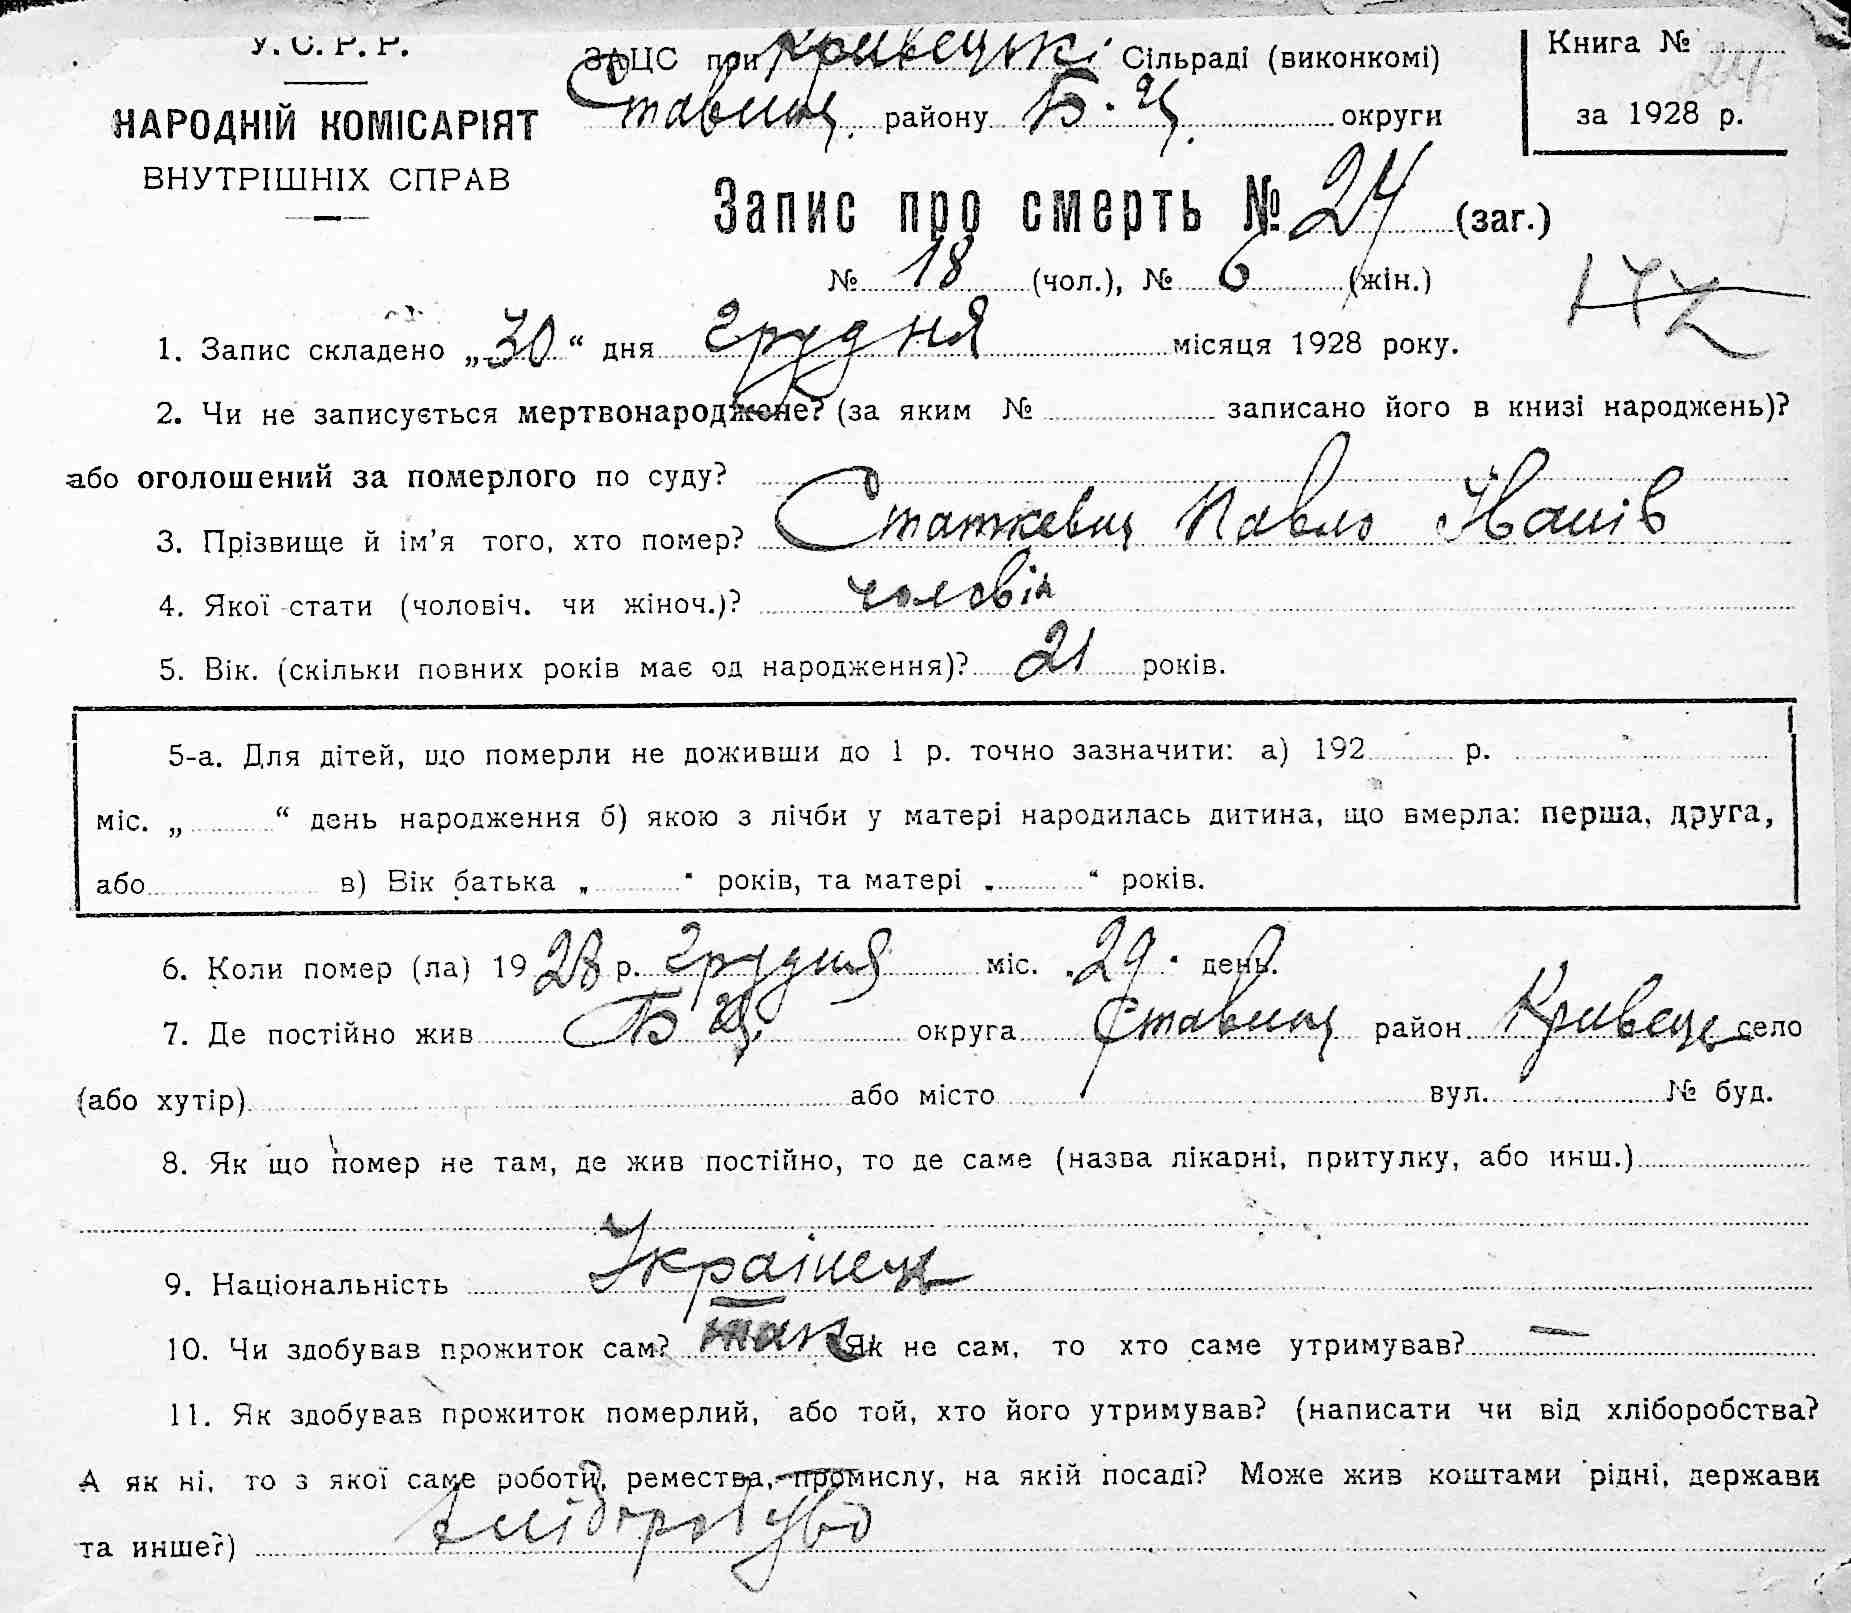 У. С. Р. Р.
НАРОДНІЙ КОМІСАРІЯТ
ВНУТРІШНІХ СПРАВ
ЗАЦС при Кривецькі Сільраді (виконкомі)
Ставищ. району Б. Ц. округи
Книга №
за 1928 р.
Запис про смерть № 24 (заг.)
№ 18 (чол.), № 6 (жін.)
1. Запис складено „30“ дня грудня місяця 1928 року.
2. Чи не записується мертвонароджене? (за яким № записано його в книзі народжень)?
або оголошений за померлого по суду?
3. Прізвище й ім’я того, хто помер? Статкевич Павло Іванів
4. Якої стати (чоловіч. чи жіноч.)? чоловік
5. Вік. (скільки повних років має од народження)? 21 років.
5-а. Для дітей, що померли не доживши до 1 р. точно зазначити: а) 192 р.
міс. „ “ день народження б) якою з лічби у матері народилась дитина, що вмерла: перша, друга,
або в) Вік батька „ “ років, та матері „ “ років.
6. Коли помер (ла) 1928 р. грудня міс. „29“ день.
7. Де постійно жив Б Ц. округа Ставищ район Кривець село
(або хутір) або місто вул. № буд.
8. Як що помер не там, де жив постійно, то де саме (назва лікарні, притулку, або инш.)
9. Національність Українець
10. Чи здобував прожиток сам? так Як не сам, то хто саме утримував? —
11. Як здобував прожиток померлий, або той, хто його утримував? (написати чи від хліборобства?
А як ні, то з якої саме роботи, ремества, промислу, на якій посаді? Може жив коштами рідні, держави
та инше?)